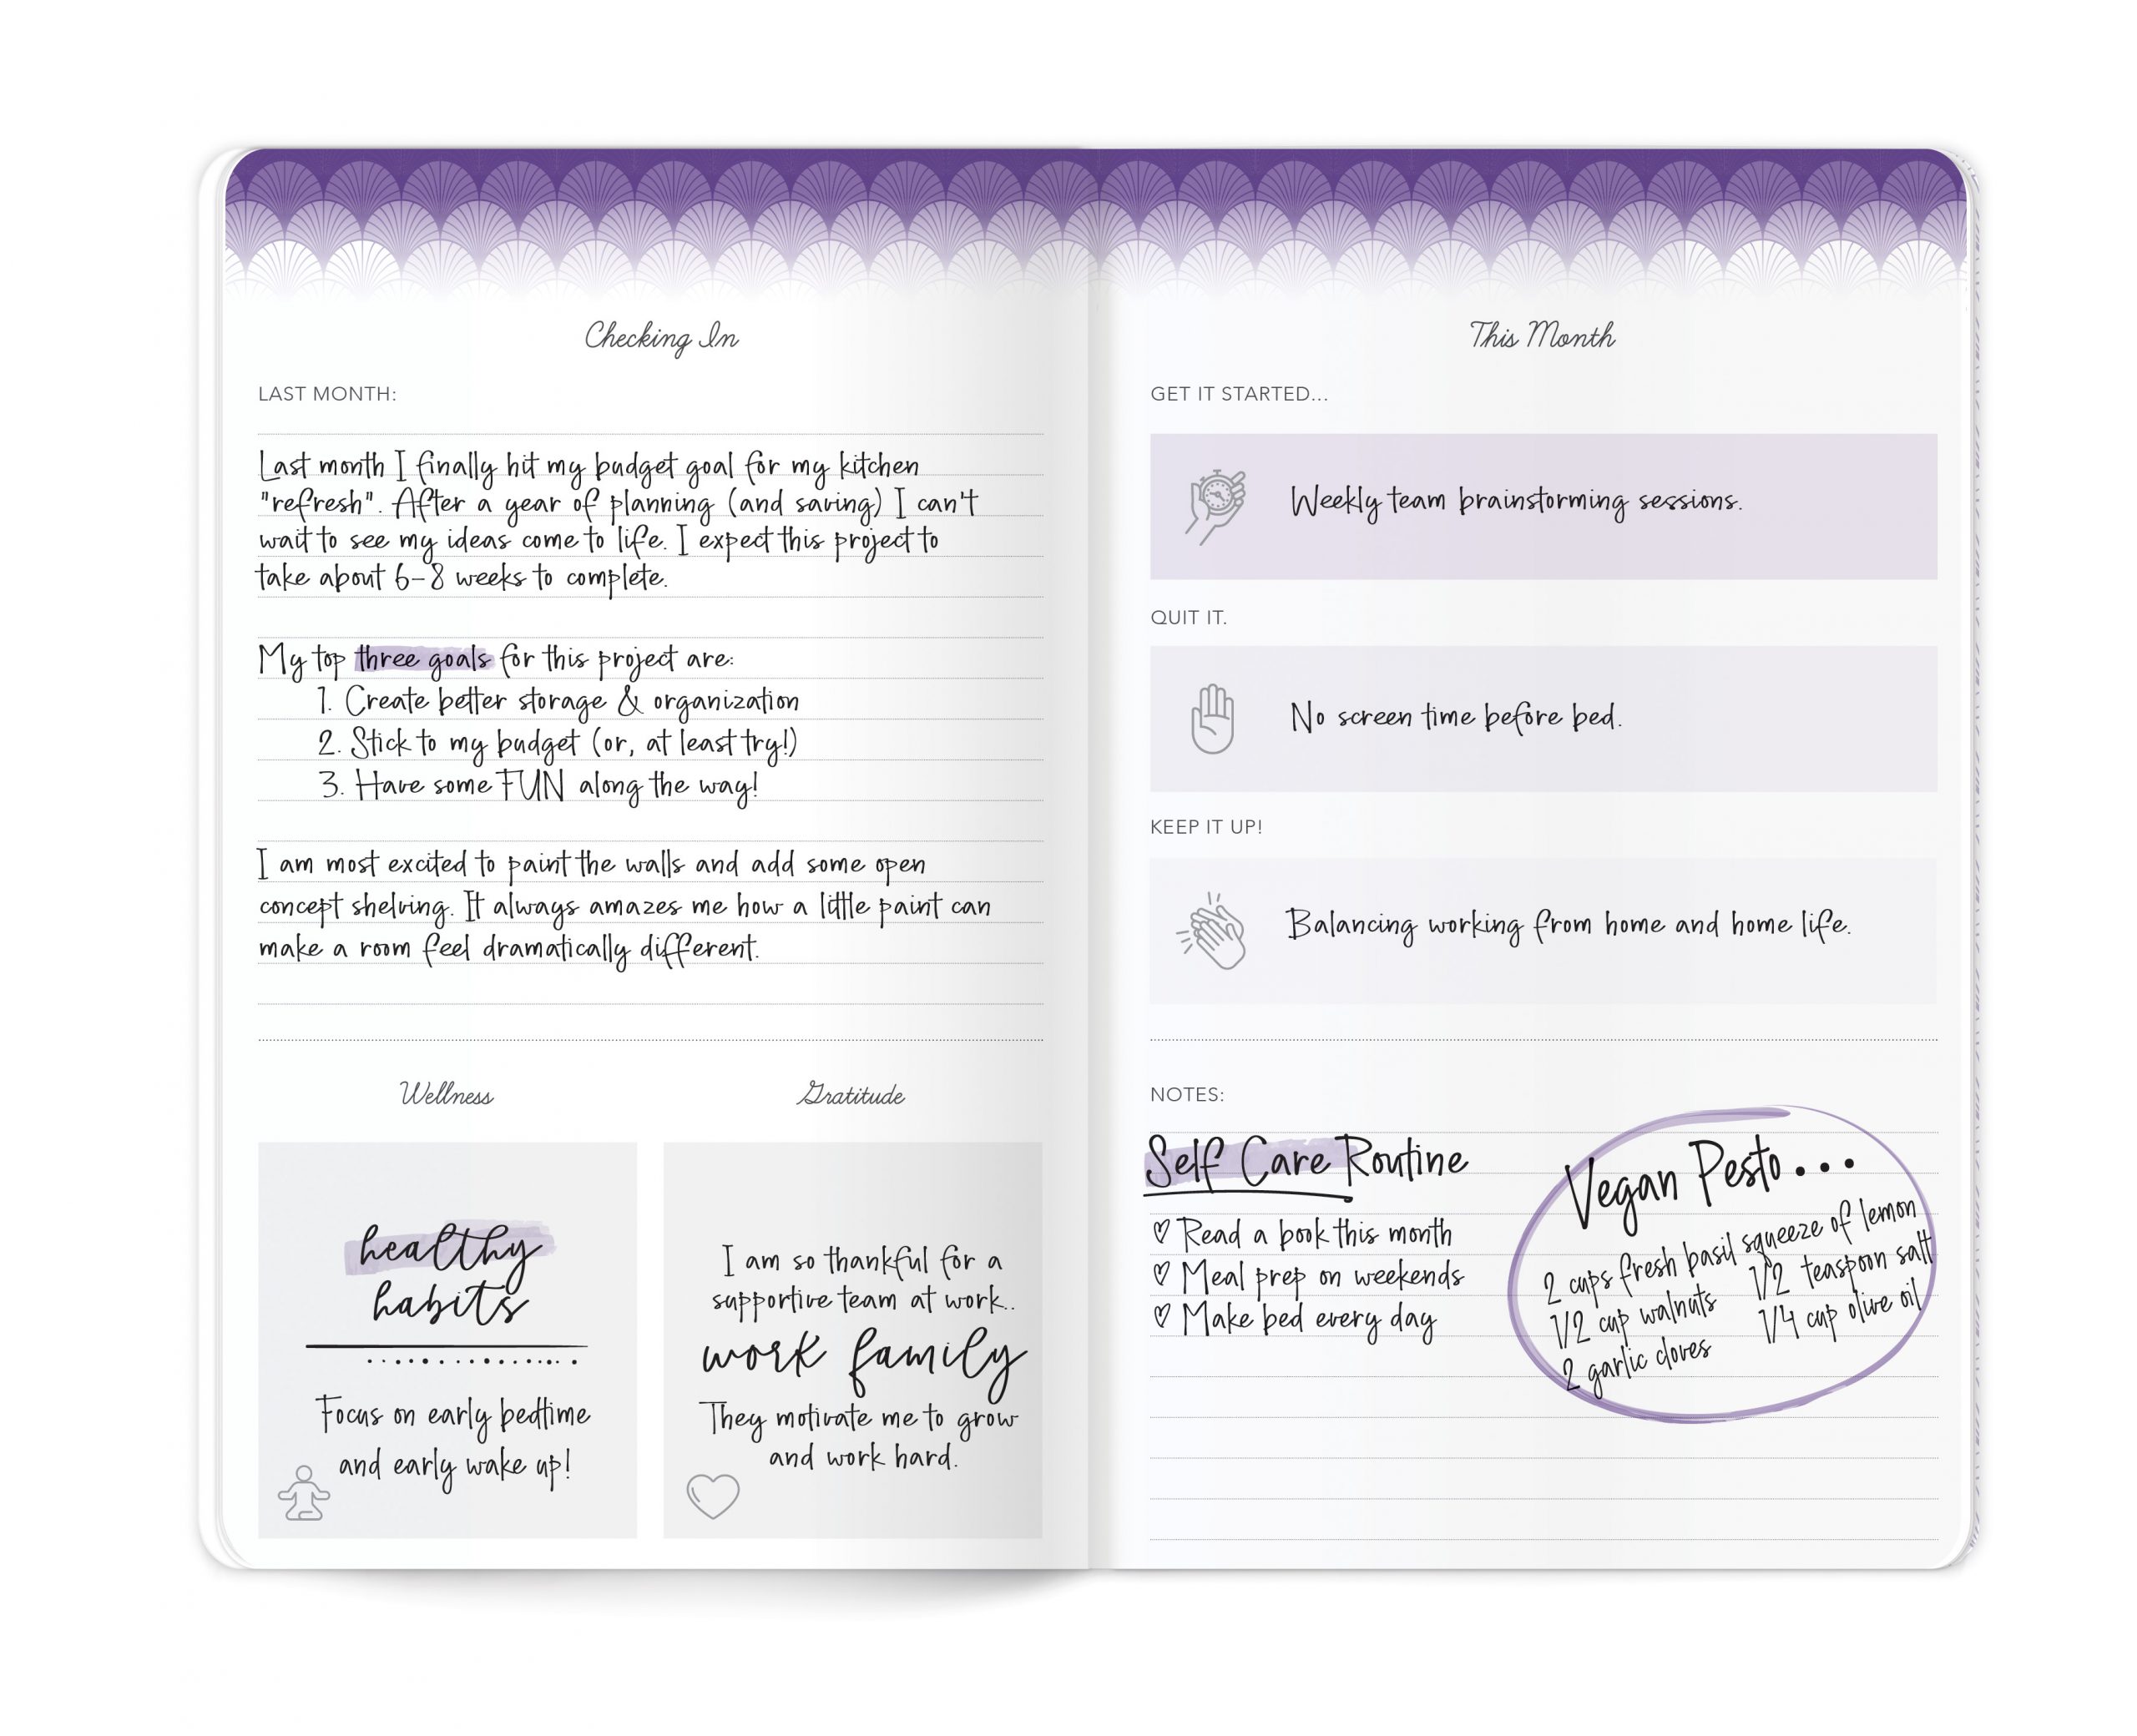 Checking In
LAST MONTH:
Last month I finally hit my budget goal for my kitchen
"refresh". After a year of planning (and saving) I can't
wait to see my ideas come to life. I expect this project to
take about 6-8 weeks to complete.
My top three goals for this project are:
1. Create better storage & organization
2. Stick to my budget (or, at least try!)
3. Have some FUN along the way!
I am most excited to paint the walls and add some open
concept shelving. It always amazes me how a little paint can
make a room feel dramatically different.
Wellness
healthy
habits
Focus on early bedtime
and early wake up!
Gratitude
I am so thankful for a
supportive team at work..
work family
They motivate me to grow
and work hard.
This Month
GET IT STARTED...
Weekly team brainstorming sessions.
QUIT IT.
No screen time before bed.
KEEP IT UP!
Balancing working from home and home life.
NOTES:
Self Care Routine
Read a book this month
Meal prep on weekends
Make bed every day
Vegan Pesto...
2 cups fresh basil
1/2 cup walnuts
2 garlic cloves
squeeze of lemon
1/2 teaspoon salt
1/4 cup olive oil